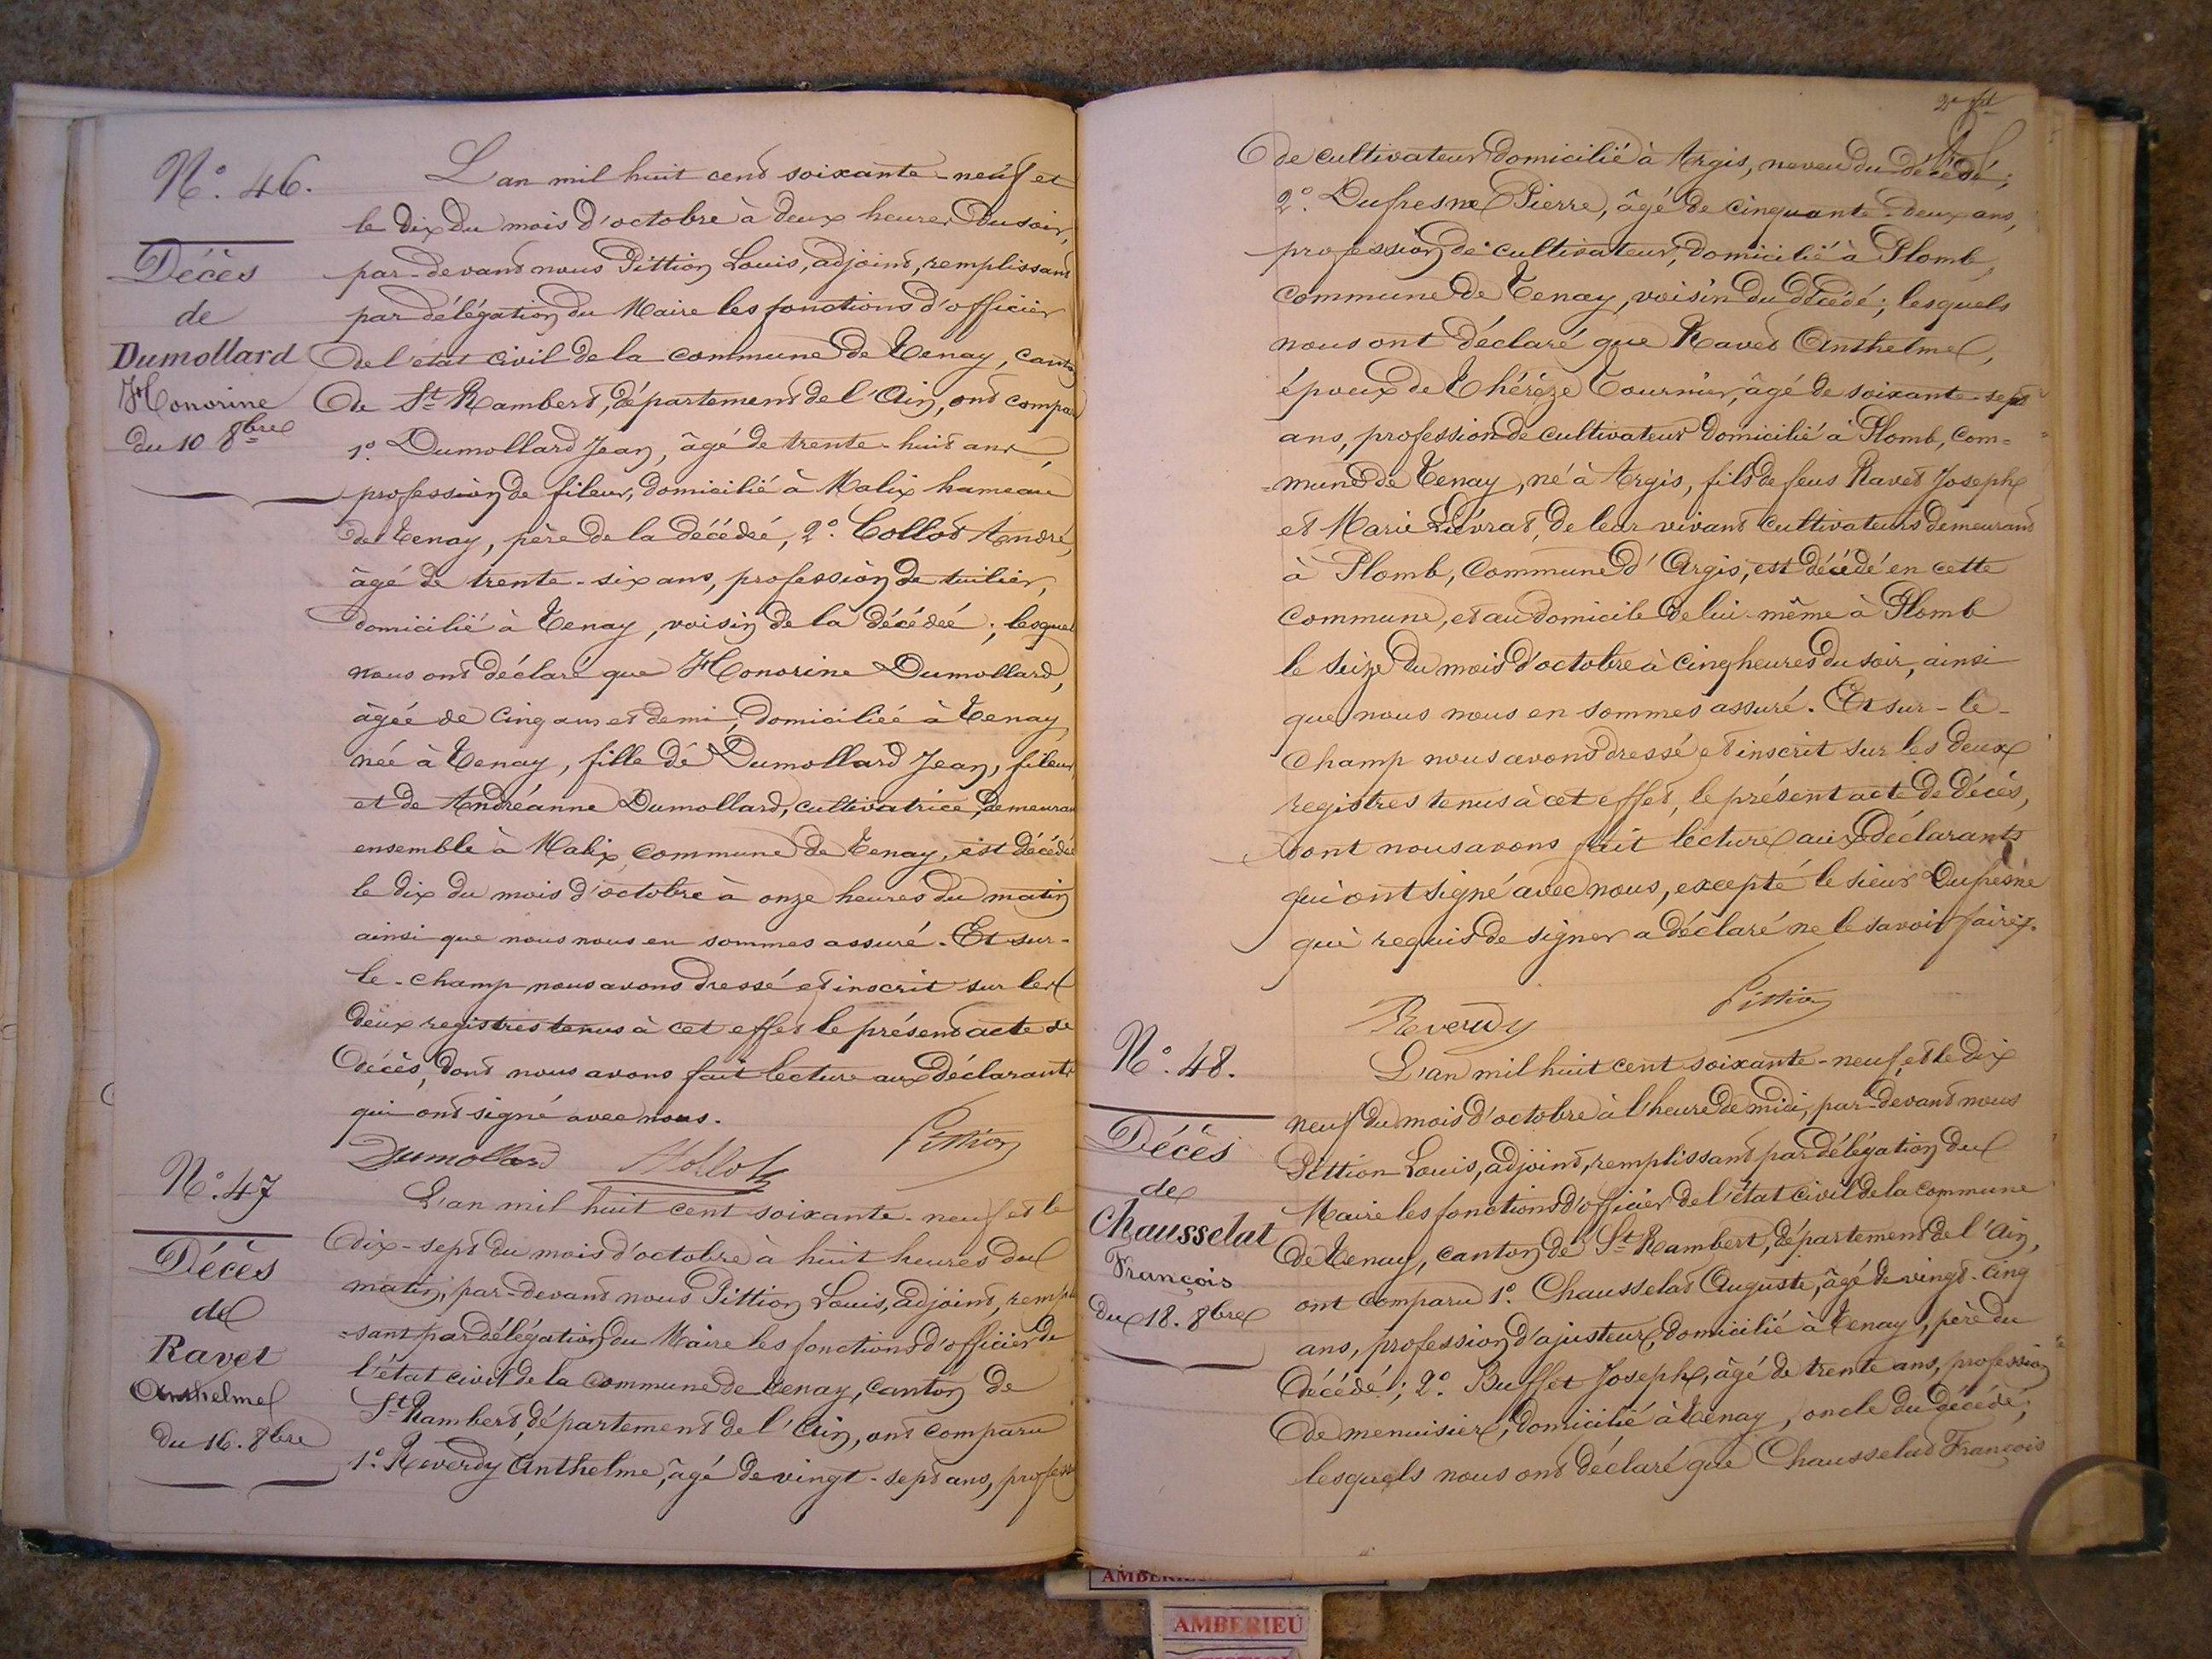 N.° 46.
Décès
de
Dumollard
Honorine
du 10 8bre
L'an mil huit cent soixante-neuf et
le dix du mois d'octobre à deux heures du soir,
par-devant nous Pittion Louis, adjoint, remplissant
par délégation du Maire les fonctions d'officier
de l'état civil de la commune de Tenay, canton
de St Rambert, département de l'Ain, ont compar
1°. Dumollard Jean, âgé de trente-huit ans,
profession de fileur, domicilié à Malix hameau
de Tenay, père de la décédée, 2°. Collot André,
âgé de trente-six ans, profession de tuilier,
domicilié à Tenay, voisin de la décédée; lesquel
nous ont déclaré que Honorine Dumollard,
âgée de cinq ans et demi, domiciliée à Tenay,
née à Tenay, fille de Dumollard Jean, fileur
et de Andréanne Dumollard, cultivatrice, demeuran
ensemble à Malix, commune de Tenay, est décédée
le dix du mois d'octobre à onze heures du matin
ainsi que nous nous en sommes assuré. Et sur-
le-champ nous avons dressé et inscrit sur les
deux registres tenus à cet effet le présent acte de
décès, dont nous avons fait lecture aux déclarants
qui ont signé avec nous.
Dumollard Collot Pittion
N.° 47
Décès
de
Ravet
Anthelme
du 16. 8bre
L'an mil huit cent soixante-neuf et le
dix-sept du mois d'octobre à huit heures du
matin, par-devant nous Pittion Louis, adjoint, rempli
-sant par délégation du Maire les fonctions d'officier de
l'état civil de la commune de Tenay, canton de
St Rambert, département de l'Ain, ont comparu
1°. Reverdy Anthelme, âgé de vingt-sept ans, profess
de cultivateur domicilié à Argis, neveu du décédé;
2°. Dufresne Pierre, âgé de cinquante-deux ans,
profession de cultivateur, domicilié à Plomb,
commune de Tenay, voisin du décédé; lesquels
nous ont déclaré que Ravet Anthelme,
époux de Thérèze Tournier, âgé de soixante-sept
ans, profession de cultivateur domicilié à Plomb, com=
=mune de Tenay, né à Argis, fils de feus Ravet Joseph
et Marie Lievrat, de leur vivant cultivateurs demeurant
à Plomb, commune d'Argis, est décédé en cette
commune, et au domicile de lui-même à Plomb
le seize du mois d'octobre à cinq heures du soir, ainsi
que nous nous en sommes assuré. Et sur-le-
champ nous avons dressé et inscrit sur les deux
registres tenus à cet effet, le présent acte de décès,
dont nous avons fait lecture aux déclarants
qui ont signé avec nous, excepté le sieur Dufresne
qui requis de signer a déclaré ne le savoir faire.
Reverdy Pittion
N.° 48.
Décès
de
Chausselat
François
du 18. 8bre
L'an mil huit cent soixante-neuf, et le dix
neuf du mois d'octobre à l'heure de midi, par-devant nous
Pittion Louis, adjoint, remplissant par délégation du
Maire les fonctions d'officier de l'état civil de la commune
de Tenay, canton de St Rambert, département de l'Ain,
ont comparu 1°. Chausselat Auguste, âgé de vingt-cinq
ans, profession d'ajusteur, domicilié à Tenay, père du
décédé; 2°. Buffet Joseph, âgé de trente ans, profession
de menuisier, domicilié à Tenay, oncle du décédé;
lesquels nous ont déclaré que Chausselat François
AMBERIEU